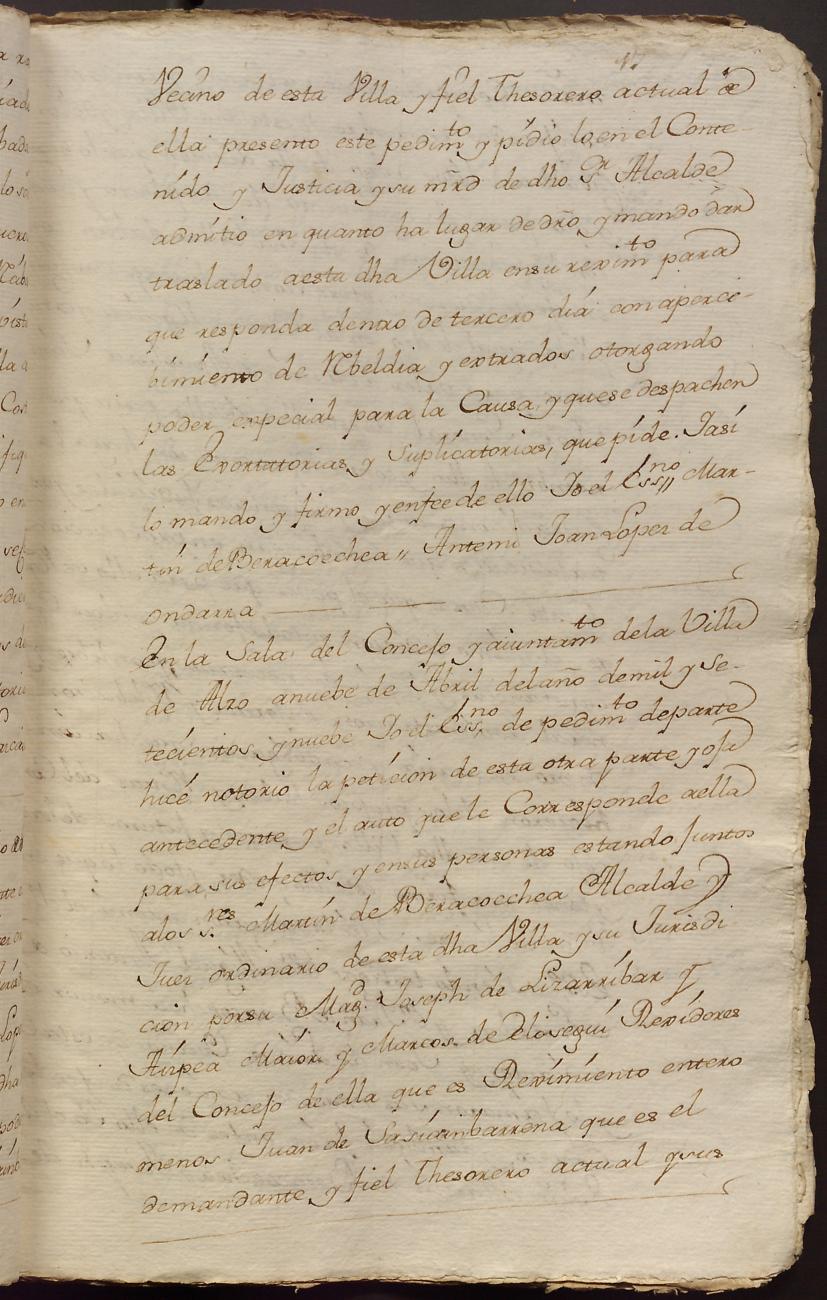 17
Vecino de esta Villa y fiel Thesorero actual de
ella presento este pedimto y pidio lo en el Conte-
nido y Justicia y su mrd de dho Sr Alcalde
admitio en quanto ha lugar de dro y mando dar
traslado a esta dha Villa en su reximto para
que responda dentro de tercero dia con aperce-
bimiento de Rbeldia y extrados otorgando
poder expecial para la Causa, y que se despachen
las Exortatorias y Suplicatorias, que pide. Iasi
lo mando y firmo y en fee de ello Io el Essno Mar-
tin de Beracoechea,, Antemi Joan Lopez de
ondarra
En la Sala del Concejo y aiuntamto de la Villa
de Alzo a nuebe de Abril del año de mil y se-
tecientos y nuebe Io el Essno de pedimto de parte
hice notorio la peticion de esta otra parte y oja
antecedente y el auto que le Corresponde a ella
para sus efectos y en sus personas estando Juntos
a los Sres Martin de Beracoechea Alcalde y
Juez ordinario de esta dha Villa y su Jurisdi
cion por su Magd Joseph de Lizarribar y
Aizpea Maior y Marcos de Elosegui Rexidores
del Concejo de ella que es Reximiento entero
menos Juan de Sasiainbarrena que es el
demandante y fiel Thesorero actual y sus